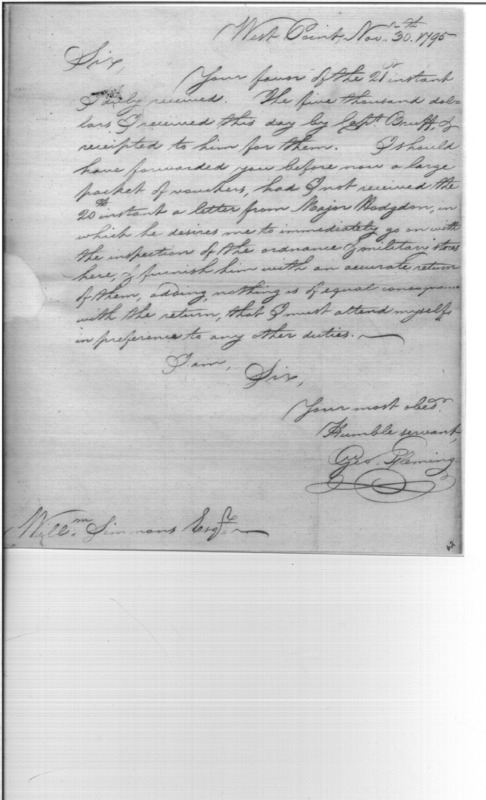 West Point, Nov. 30th. 1795
Sir,
Your favor of the 21st instant
I duly received. The five thousand dol-
lars I received this day by Capt. Bruff, &
receipted to him for them. I should
have forwarded you before now a large
packet of vouchers, had I not received the
20th instant a letter from Major Hodgdon, in
which he desires me to immediately go on with
the inspection of the ordnance & military stores
here, & furnish him with an accurate return
of them, adding, nothing is of equal consequence
with the return, that I must attend myself
in preference to any other duties.
I am,
Sir,
Your most obed.
Humble servant,
Geo. Fleming
Willm. Simmons Esqr.